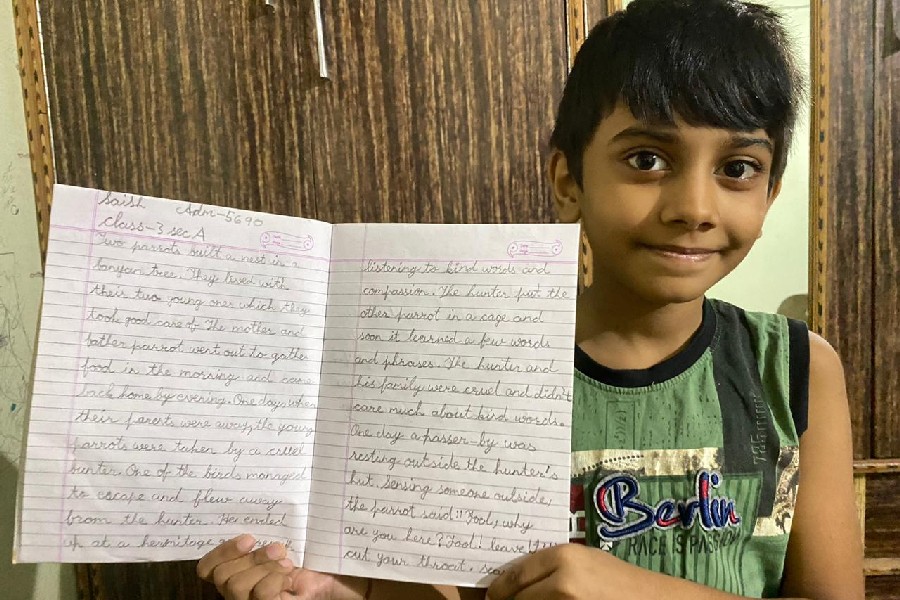 Saish Adm-5690
Class-3 sec A
Two parrots built a nest in a
banyan tree. They lived with
their two young ones which they
took good care of. The mother and
father parrot went out to gather
food in the morning and came
back home by evening. One day, when
their parents were away, the young
parrots were taken by a cruel
hunter. One of the birds managed
to escape and flew away
from the hunter. He ended
up at a hermitage
listening to kind words and
compassion. The hunter put the
other parrot in a cage and
soon it learned a few words
and phrases. The hunter and
his family were cruel and didn't
care much about kind words.
One day a passer-by was
resting outside the hunter's
hut. Sensing someone outside,
the parrot said "Fool, why
are you here? Fool! leave!
cut your throat.
Berlin
RACE IS PASSION